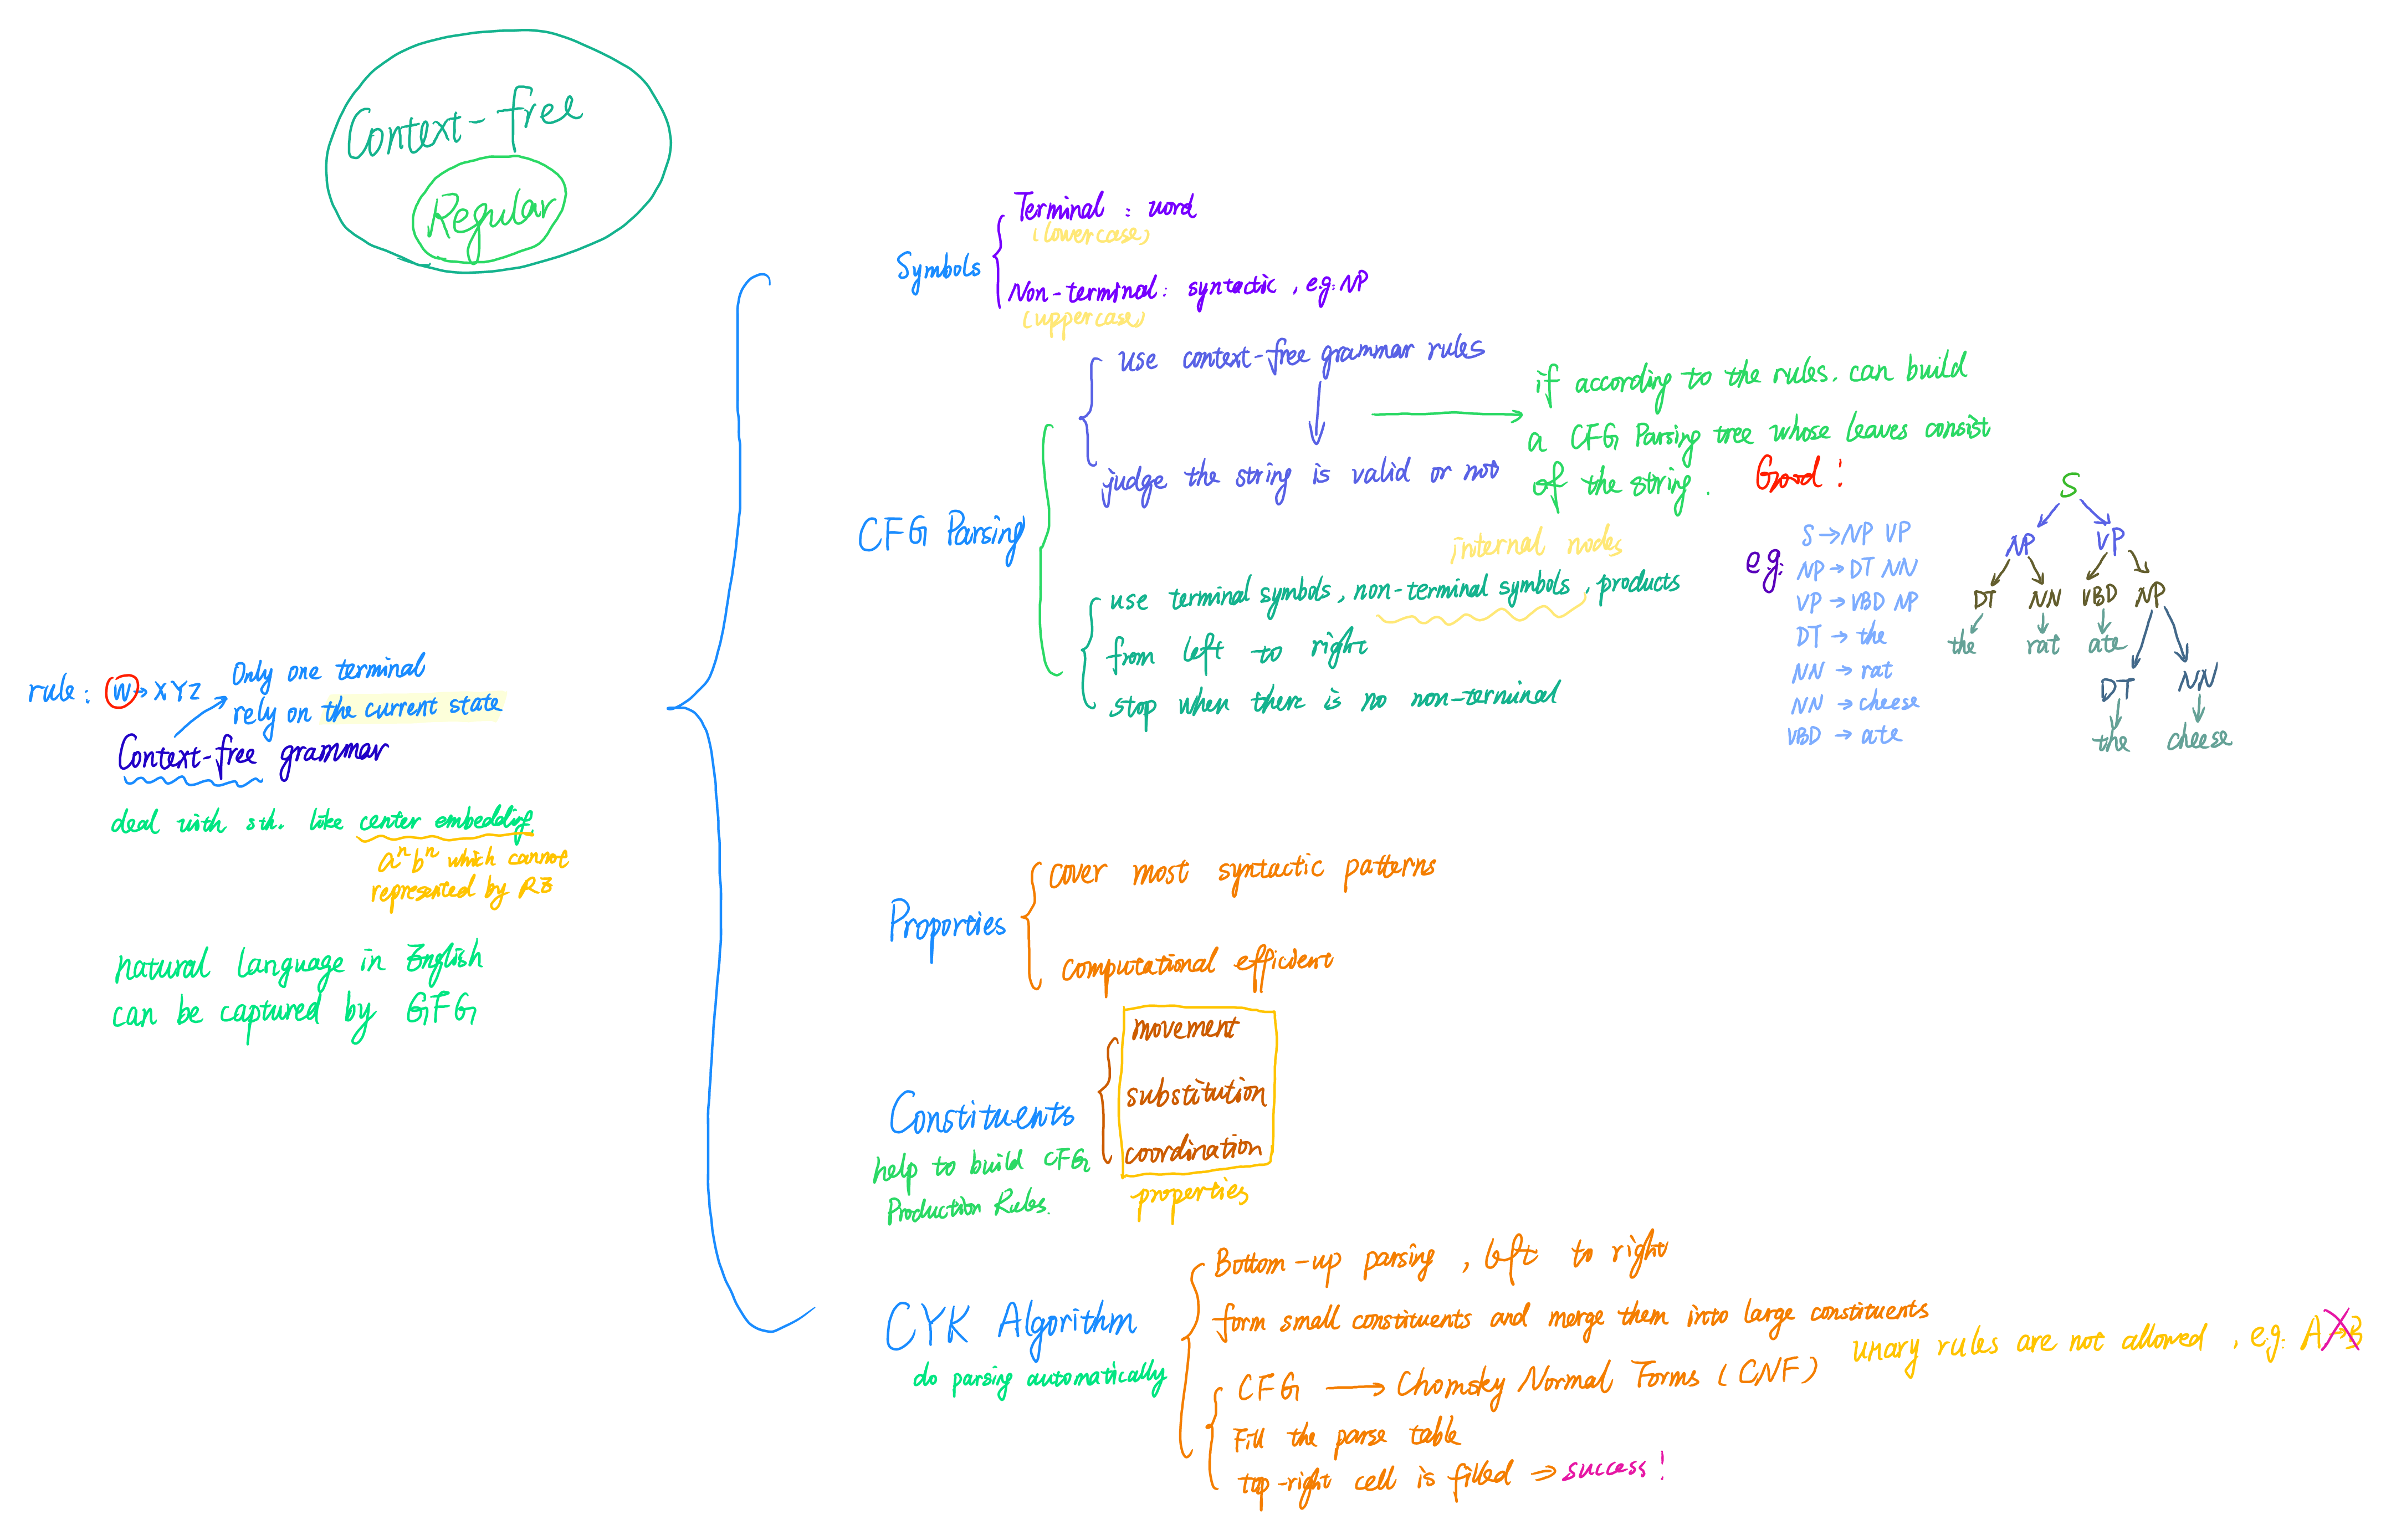 Context-free
Regular
rule: W→XYZ
Only one terminal
rely on the current state
Context-free grammar
deal with sth. like center embedding
aⁿbⁿ which cannot
represented by RE
natural language in English
can be captured by GFG
Symbols
Terminal : word
(lowercase)
Non-terminal: syntactic, e.g. NP
(uppercase)
CFG Parsing
use context-free grammar rules
judge the string is valid or not
if according to the rules. can build
a CFG Parsing tree whose leaves consist
of the string.
Good!
internal nodes
use terminal symbols, non-terminal symbols, products
from left to right
stop when there is no non-terminal
e.g.
S→NP VP
NP→DT NN
VP→VBD NP
DT→the
NN→rat
NN→cheese
VBD→ate
S
NP VP
DT NN VBD NP
the rat ate
DT NN
the cheese
Proporties
cover most syntactic patterns
computational efficient
Constituents
help to build CFG
Production Rules.
movement
substitution
coordination
properties
CYK Algorithm
do parsing automatically
Bottom-up parsing, left to right
form small constituents and merge them into large constituents
CFG → Chomsky Normal Forms (CNF)
unary rules are not allowed, e.g: A→B
Fill the parse table
top-right cell is filled → success!